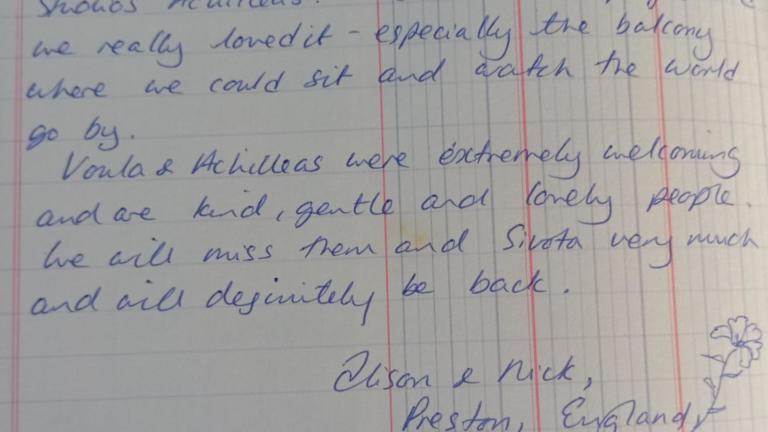 Studios Achilleas.
we really loved it - especially the balcony
where we could sit and watch the world
go by.
Voula & Achilleas were extremely welcoming
and are kind, gentle and lovely people.
We will miss them and Sivota very much
and will definitely be back.
Alison & Nick,
Preston, England,